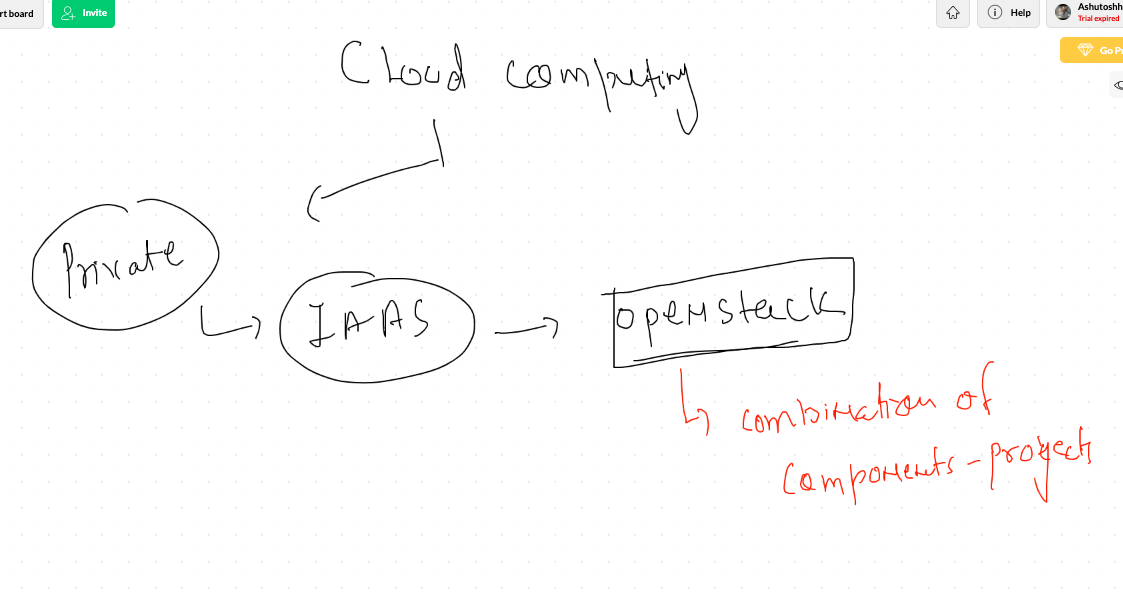 rt board
Invite
Help
Ashutoshh
Trial expired
Cloud computing
Go P
Private
IAAS
openstack
combination of
components-projects